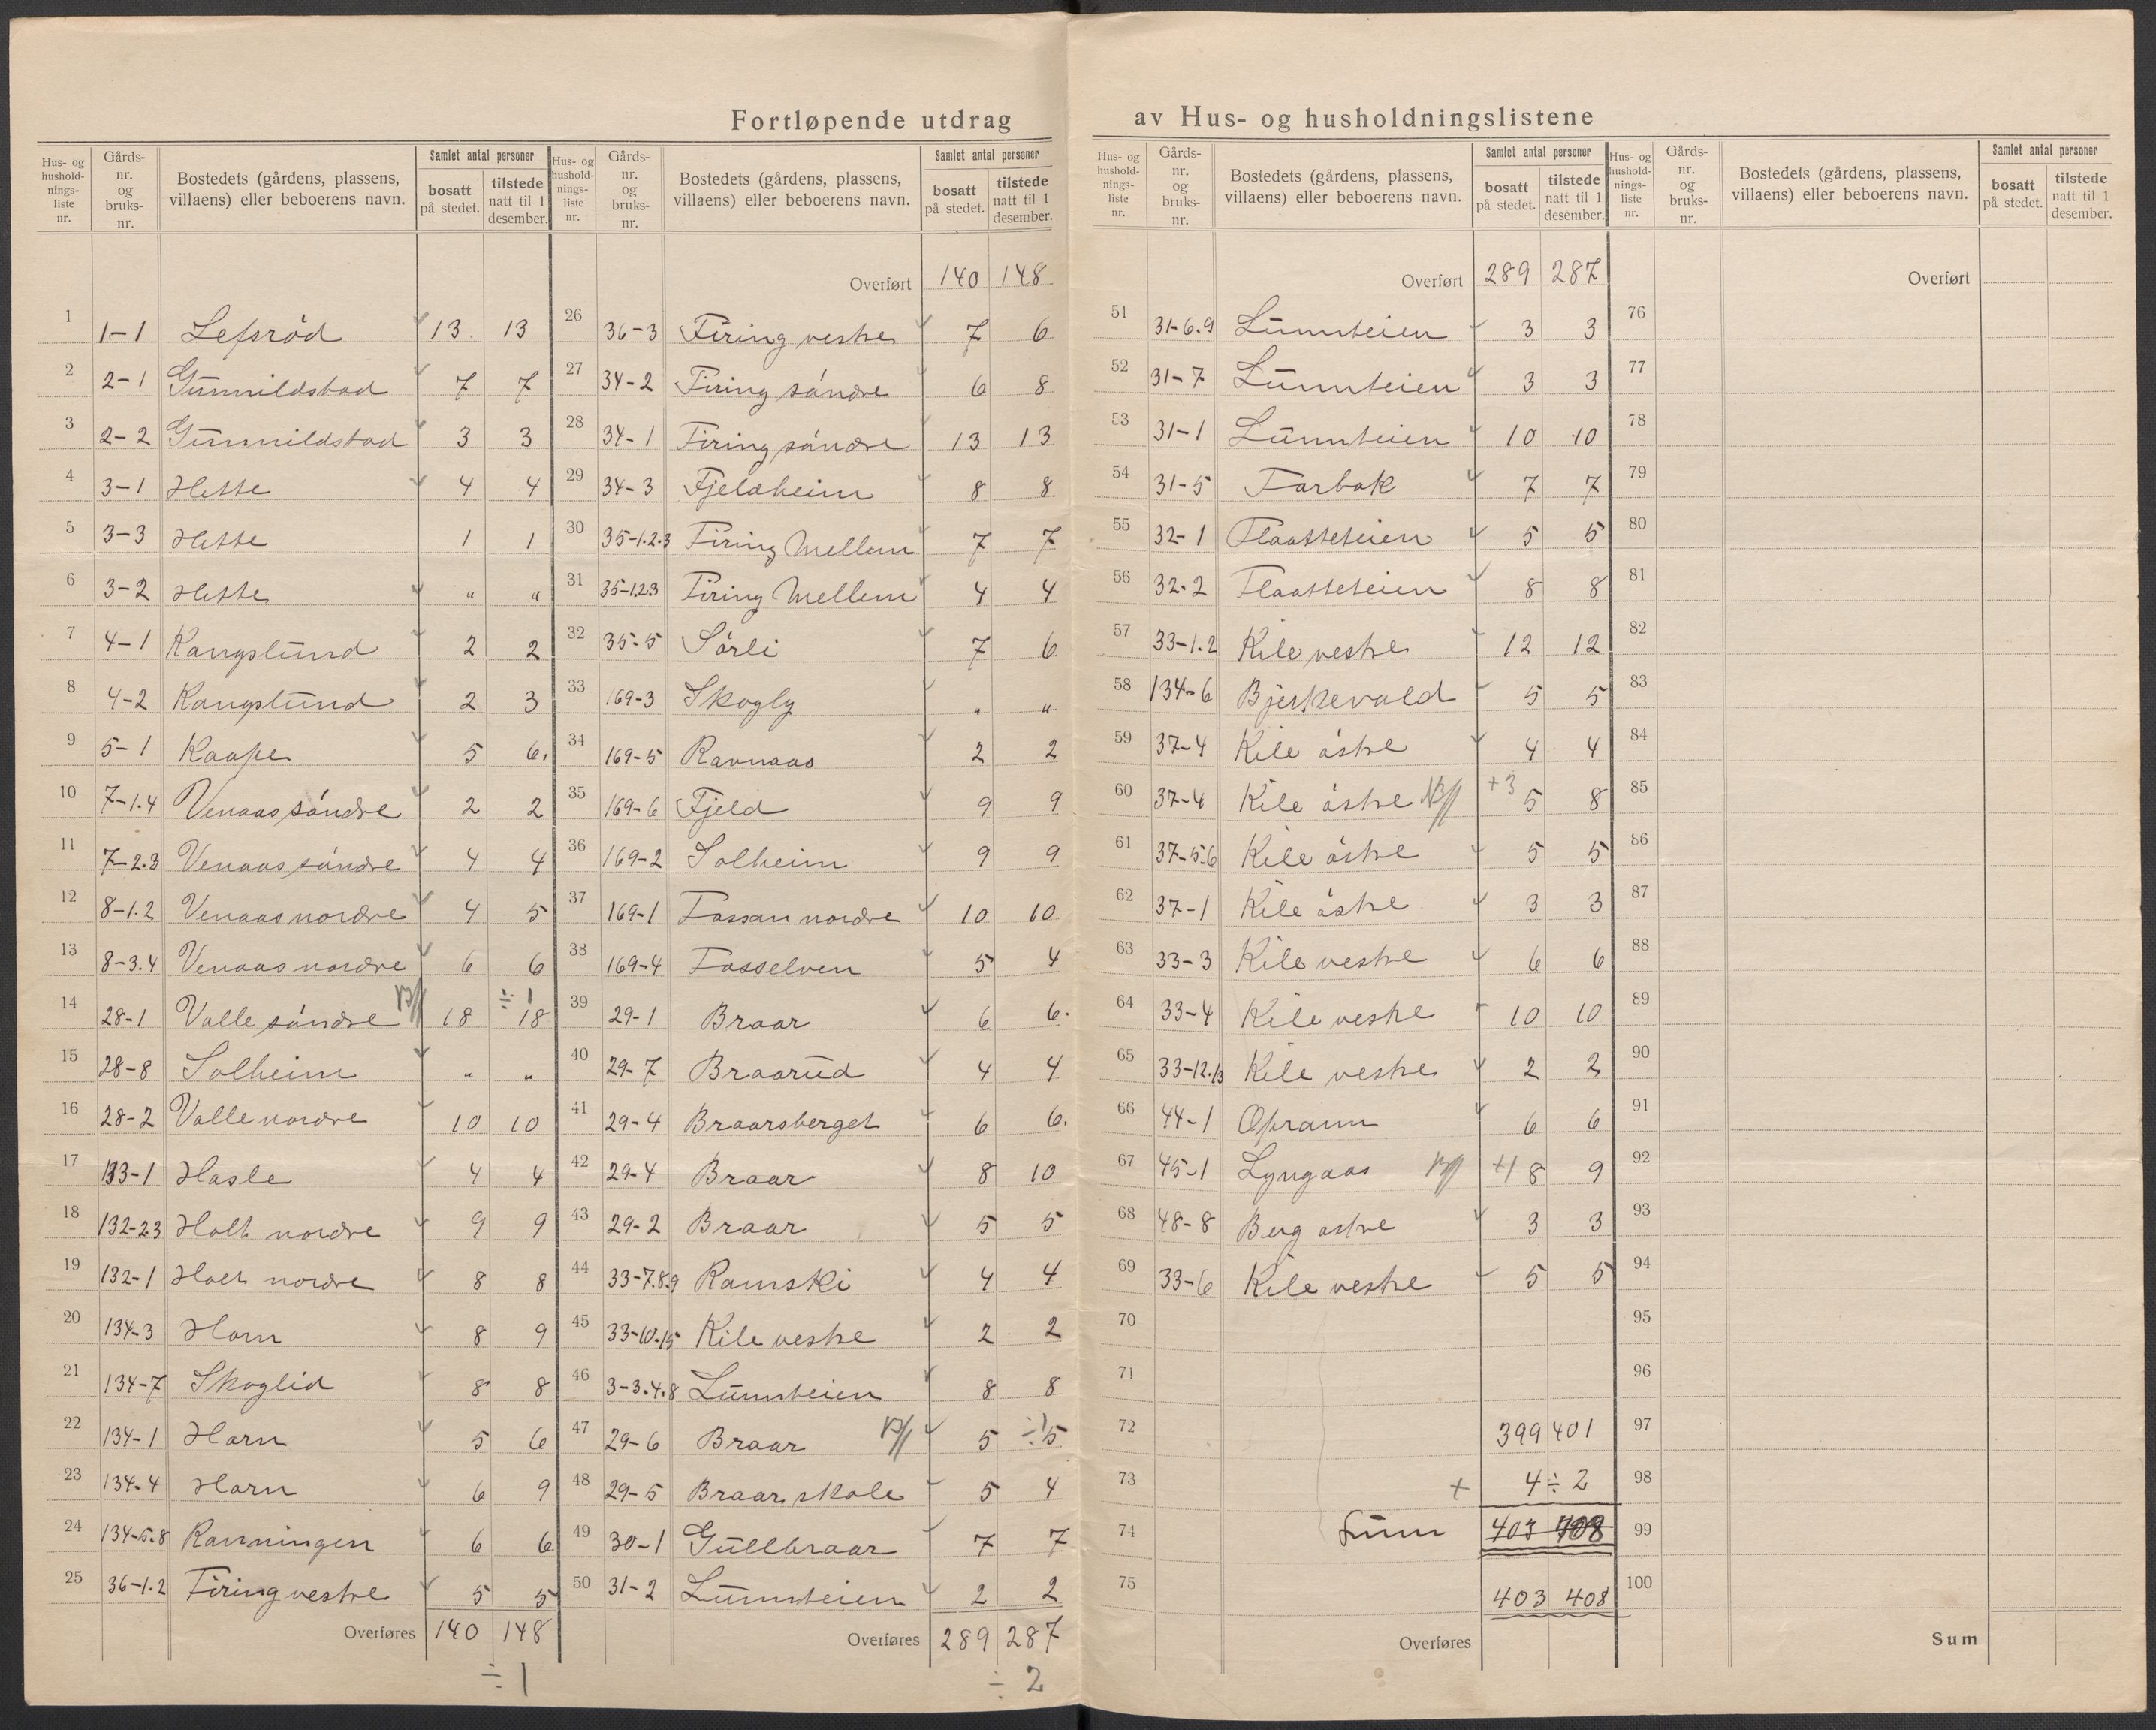 Fortløpende utdrag av Hus- og husholdningslistene
Hus- og husholdningsliste nr. Gårdsnr. og bruksnr. Bostedets (gårdens, plassens, villaens) eller beboerens navn. Samlet antal personer bosatt på stedet. tilstede natt til 1 desember.
1 1-1 Lefsrød 13 13
2 2-1 Gunnildsbad 7 7
3 2-2 Gunnildsbad 3 3
4 3-1 Hette 4 4
5 3-3 Hette 1 1
6 3-2 Hette " "
7 4-1 Kangslund 2 2
8 4-2 Kangslund 2 3
9 5-1 Kaape 5 6.
10 7-1.4 Venaas søndre 2 2
11 7-2.3 Venaas søndre 4 4
12 8-1.2 Venaas nordre 4 5
13 8-3.4 Venaas nordre 6 6
14 28-1 Valle søndre 18 ÷1 18
15 28-8 Solheim " "
16 28-2 Valle nordre 10 10
17 133-1 Hasle 4 4
18 132-2.3 Holt nordre 9 9
19 132-1 Holt nordre 8 8
20 134-3 Horn 8 9
21 134-7 Skoglid 8 8
22 134-1 Horn 5 6
23 134-4 Horn 6 9
24 134-5.8 Ranningen 6 6
25 36-1.2 Firing vestre 5 5
Overføres 140 148
÷1
Hus- og husholdningsliste nr. Gårdsnr. og bruksnr. Bostedets (gårdens, plassens, villaens) eller beboerens navn. Samlet antal personer bosatt på stedet. tilstede natt til 1 desember.
Overført 140 148
26 36-3 Firing vestre 7 6
27 34-2 Firing søndre 6 8
28 34-1 Firing søndre 13 13
29 34-3 Fjeldheim 8 8
30 35-1.2.3 Firing Mellem 7 7
31 35-1.2.3 Firing Mellem 4 4
32 35-5 Sørli 7 6
33 169-3 Skogly " "
34 169-5 Ravnaas 2 2
35 169-6 Fjeld 9 9
36 169-2 Solheim 9 9
37 169-1 Fossan nordre 10 10
38 169-4 Fosselven 5 4
39 29-1 Braar 6 6.
40 29-7 Braarud 4 4
41 29-4 Braarsberget 6 6.
42 29-4 Braar 8 10
43 29-2 Braar 5 5
44 33-7.8.9 Ramski 4 4
45 33-10.15 Kile vestre 2 2
46 3-3.4.8 Lunnteien 8 8
47 29-6 Braar 5 ÷1 5
48 29-5 Braar skole 5 4
49 30-1 Gullbraar 7 7
50 31-2 Lunnteien 2 2
Overføres 289 287
÷ 2
Hus- og husholdningsliste nr. Gårdsnr. og bruksnr. Bostedets (gårdens, plassens, villaens) eller beboerens navn. Samlet antal personer bosatt på stedet. tilstede natt til 1 desember.
Overført 289 287
51 31-6.9 Lunnteien 3 3
52 31-7 Lunnteien 3 3
53 31-1 Lunnteien 10 10
54 31-5 Farbak 7 7
55 32-1 Flaatteteien 5 5
56 32-2 Flaatteteien 8 8
57 33-1.2 Kile vestre 12 12
58 134-6 Bjerkevald 5 5
59 37-4 Kile østre 4 4
60 37-4 Kile østre NB +3 5 8
61 37-5.6 Kile østre 5 5
62 37-1 Kile østre 3 3
63 33-3 Kile vestre 6 6
64 33-4 Kile vestre 10 10
65 33-12.13 Kile vestre 2 2
66 44-1 Oprann 6 6
67 45-1 Lyngaas +1 8 9
68 48-8 Berg østre 3 3
69 33-6 Kile vestre 5 5
70
71
72 399 401
73 + 4 ÷ 2
74 Sum 403 408
75 403 408
Overføres
Hus- og husholdningsliste nr. Gårdsnr. og bruksnr. Bostedets (gårdens, plassens, villaens) eller beboerens navn. Samlet antal personer bosatt på stedet. tilstede natt til 1 desember.
Overført
76
77
78
79
80
81
82
83
84
85
86
87
88
89
90
91
92
93
94
95
96
97
98
99
100
Sum